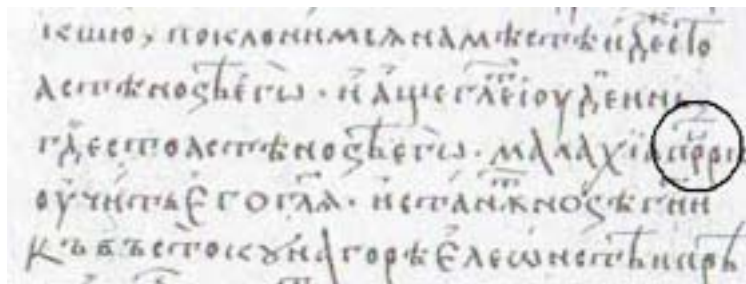 поклонимься на мѣстѣ идеⷤ сто
ястѣ ноѕѣ єгѡ · и аще гл҃еть іоудеинь
гдѣ стоястѣ ноѕѣ єгѡ · малахїа прⷪ҇р
оучить єго гл҃ѧ · и станⷮѣ ноѕѣ гн҃и
къ въстокꙋ на горѣ єлеѡнстѣи прѣ